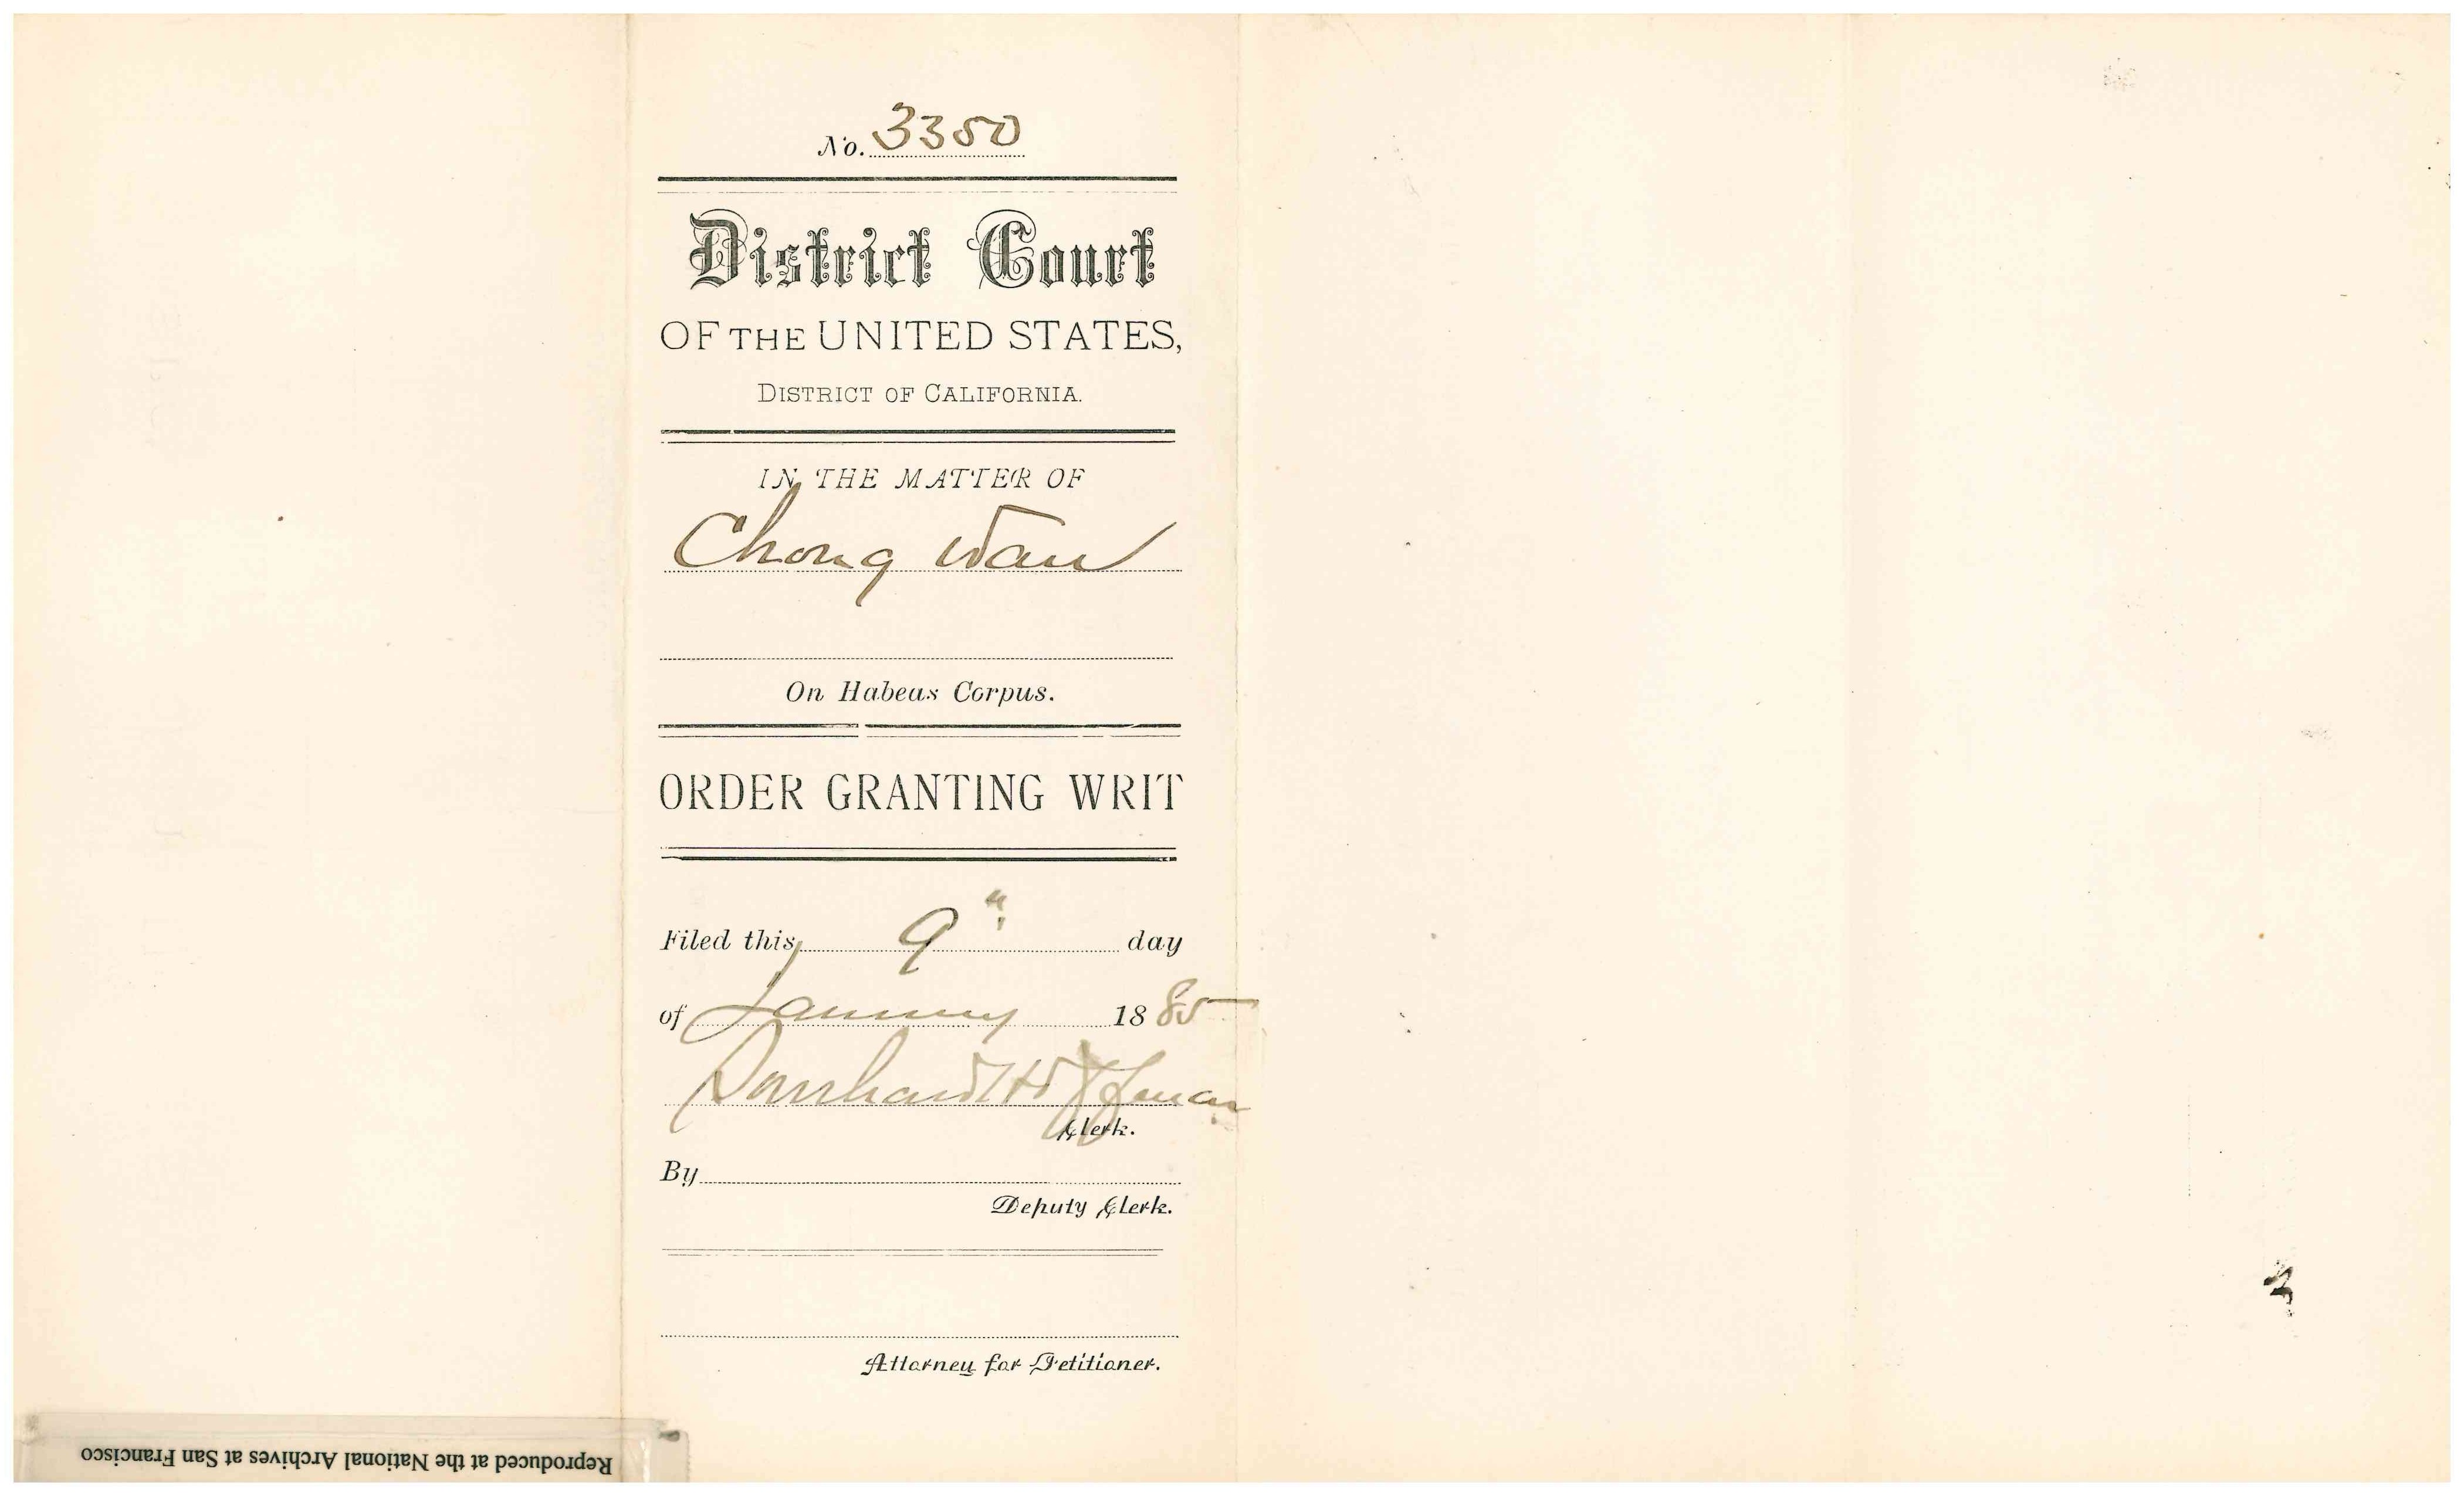 No. 3350
District Court
OF THE UNITED STATES,
DISTRICT OF CALIFORNIA.
IN THE MATTER OF
Chong Wan
On Habeas Corpus.
ORDER GRANTING WRIT
Filed this 9" day
of January 1885
Hoffman
Clerk.
By
Deputy Clerk.
Attorney for Petitioner.
Reproduced at the National Archives at San Francisco